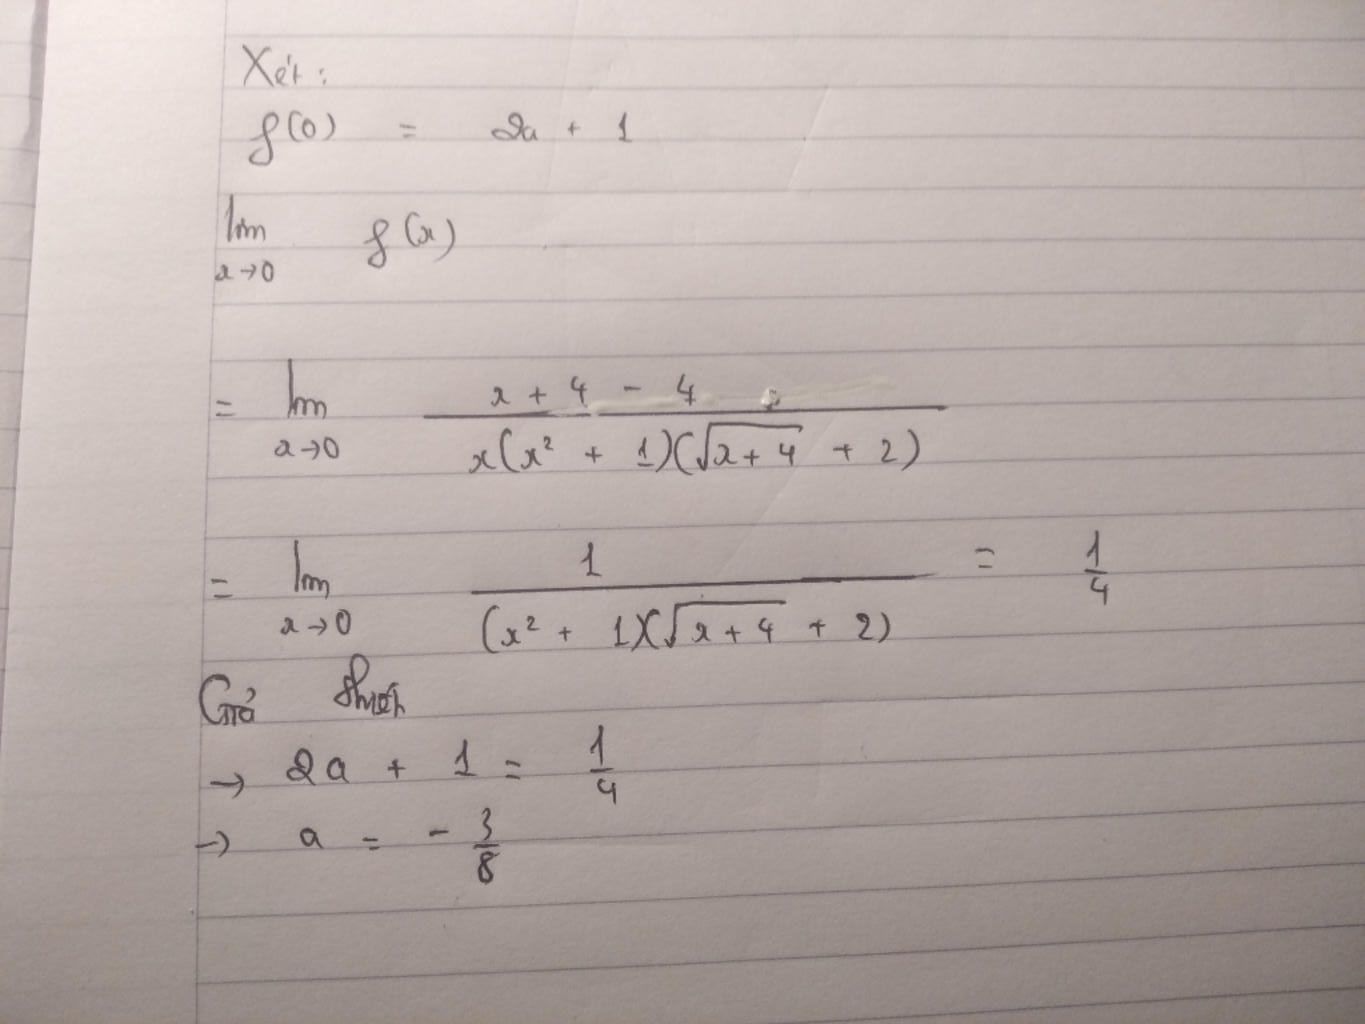 Xét :
f(0) = 2a + 1
lim x→0 f(x)
= lim x→0 (x + 4 - 4)/(x(x² + 1)(√(x + 4) + 2))
= lim x→0 1/((x² + 1)(√(x + 4) + 2)) = 1/4
Giả thiết
→ 2a + 1 = 1/4
→ a = - 3/8